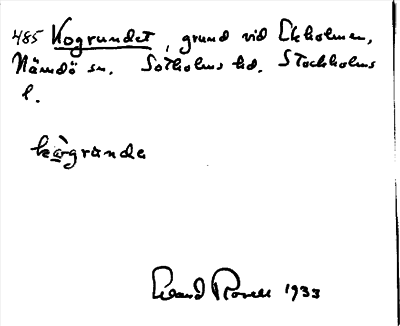 485 Kogrundet, grund vid Ekholmen,
Nämdö sn. Sotholms hd. Stockholms
l.
kògrunde
Erland Rosell 1933